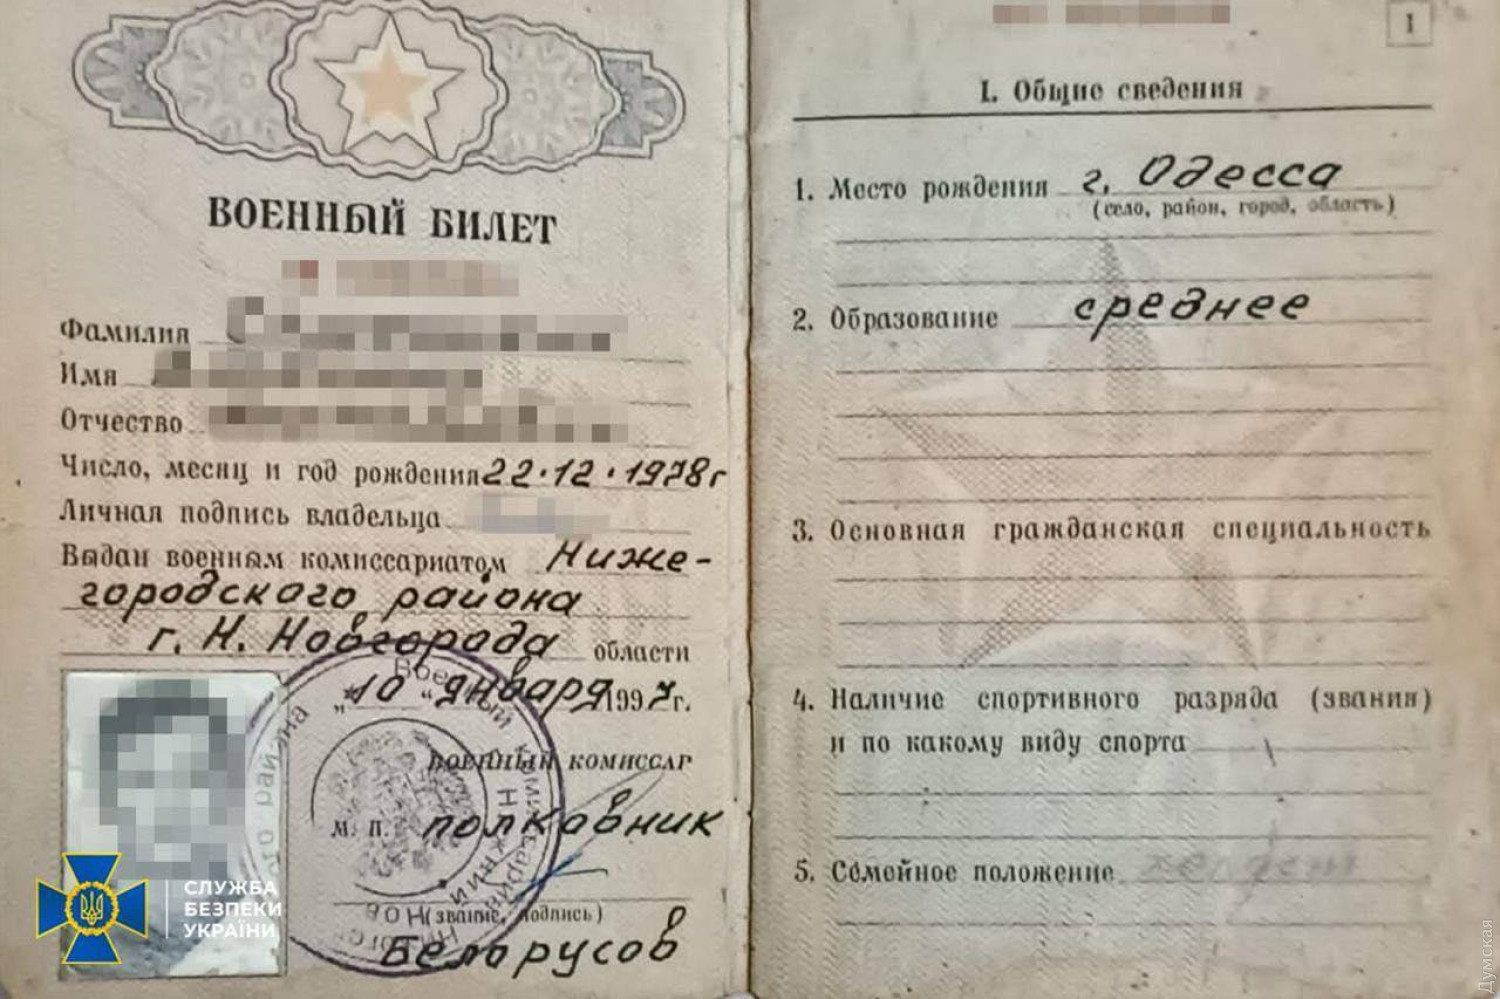 ВОЕННЫЙ БИЛЕТ
Фамилия
Имя
Отчество
Число, месяц и год рождения 22.12.1978г
Личная подпись владельца
Выдан военным комиссариатом Ниже-
городского района
г. Н. Новгорода области
„10“ января 1997г.
Военный комиссар
М. П. полковник
(звание, подпись)
Белорусов
СЛУЖБА
БЕЗПЕКИ
УКРАЇНИ
1
I. Общие сведения
1. Место рождения г. Одесса
(село, район, город, область)
2. Образование среднее
3. Основная гражданская специальность
4. Наличие спортивного разряда (звания)
и по какому виду спорта
5. Семейное положение
Думская